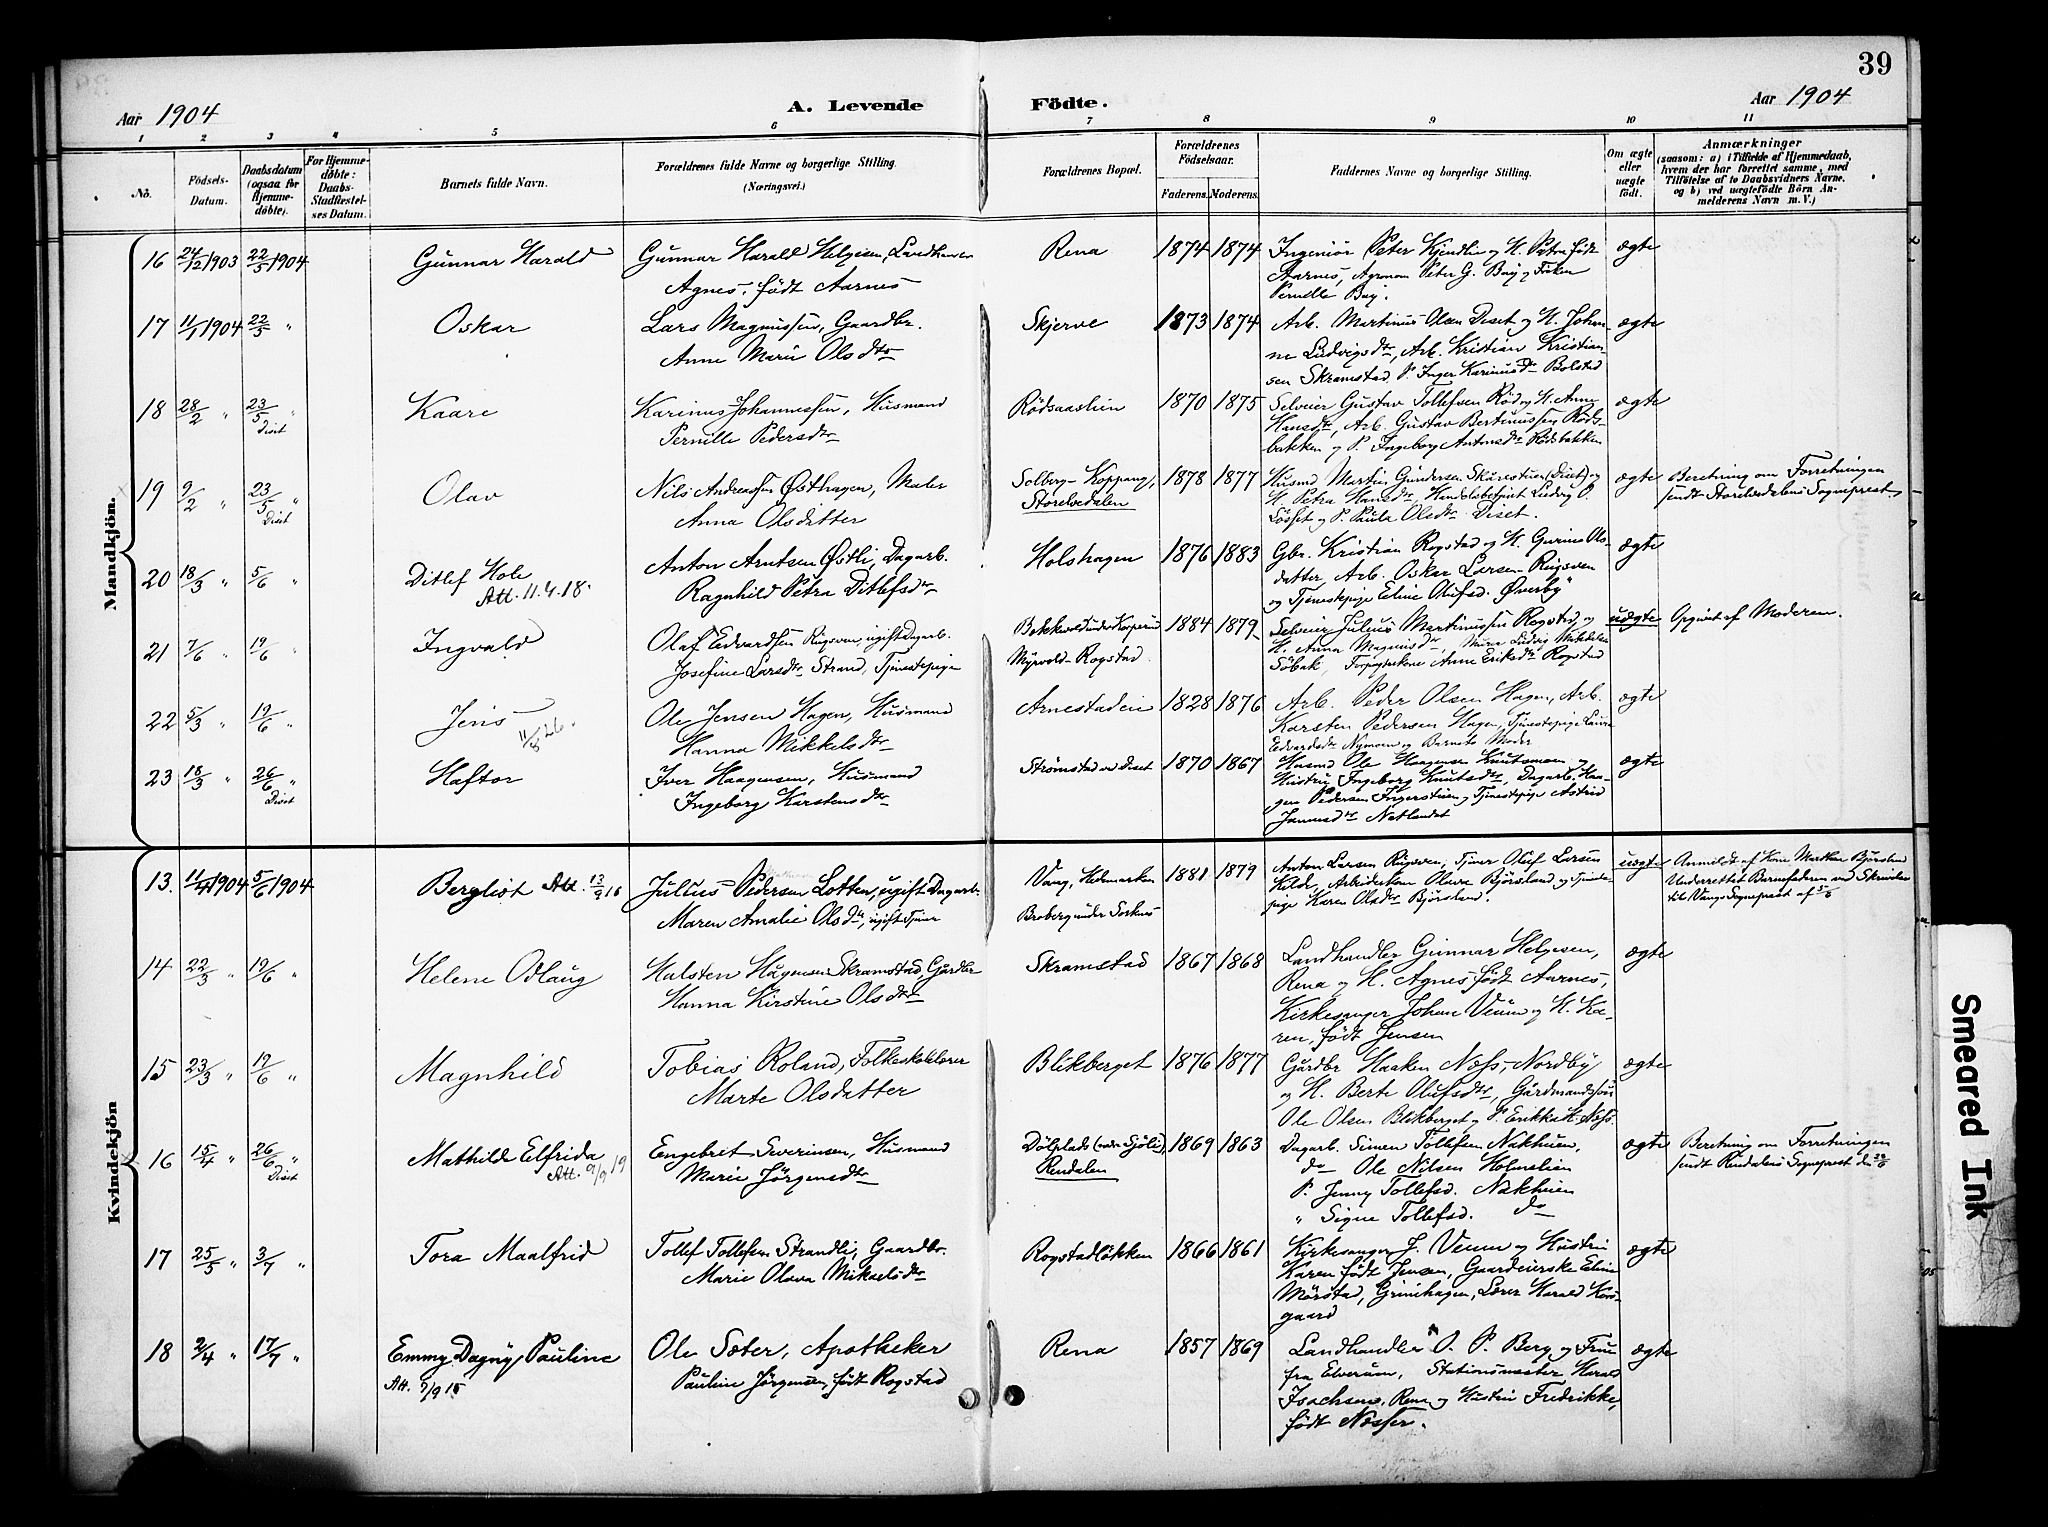 39
Aar 1904
A. Levende Födte.
Aar 1904
1 2 3 4 5 6 7 8 9 10 11
No.
Födsels-Datum.
Daabsdatum (ogsaa for Hjemme-døbte).
For Hjemme-døbte: Daabs-Stadfæstel-ses Datum.
Barnets fulde Navn.
Forældrenes fulde Navne og borgerlige Stilling. (Næringsvei.)
Forældrenes Bopæl.
Forældrenes Fødselsaar.
Faderens. Moderens.
Faddernes Navne og borgerlige Stilling.
Om ægte eller uægte født.
Anmærkninger
(saasom: a) i Tilfælde af Hjemmedaab,
hvem der har forrettet samme, med
Tilföielse af to Daabsvidners Navne,
og b) ved uægtefødte Börn An-
melderens Navn m. V.)
Mandkjön.
16 24/12 1903 22/5 1904 Gunnar Harald
Gunnar Harald Helgesen, Landhandler
Agnes, født Aarnes
Rena 1874 1874
Ingeniør Peter Kjendlie og H. Petra født
Aarnes, Agronom Peter G. Berg og Frøken
Pernille Berg.
ægte
17 11/1 1904 22/5 " Oskar
Lars Magnussen, Gaardbr.
Anne Marie Olsdtr
Skjerve 1873 1874
Arb. Martinus Olsen Diset og H. Johan-
ne Ludvigsdtr, Arb. Kristian Kristian-
sen Skramstad, P. Inger Karinusdr Bolstad
ægte
18 28/2 " 23/5 " Diset Kaare
Karinus Johannessen, Husmand
Pernille Pedersdtr
Rødsaaslien 1870 1875
Selveier Gustav Tollefsen Rød og H. Anne
Hansdtr, Arb. Gustav Bertinussen Røds-
bakken og P. Ingeborg Antonsdtr Rødsbakken
ægte
19 9/2 " 23/5 " Diset Olav
Nils Andreassen Østhagen, Maler
Anna Olsdatter
Solberg - Koppang,
Storelvedalen
1878 1877
Husmd Martin Gundersen Skurestuen (Diset) og
H. Petra Hansdtr, Handelsbetjent Ludvig O.
Løsset og P. Paula Olsdtr Diset.
ægte
Beretning om Forretningen
sendt Storelvedalens Sogneprest
20 18/3 " 5/6 " Ditlef Hole
Att. 11.4.18.
Anton Arntsen Østli, Dagarb.
Ragnhild Petra Ditlefsdtr
Holshagen 1876 1883
Gbr. Kristian Rogstad og H. Gurine Ols-
datter, Arb. Oskar Larsen Rugsveen
og Tjenestepige Eline Olufsd. Øverby
ægte
21 7/6 " 19/6 " Ingvald
Olaf Edvardsen Rugsveen, ugift Dagarb.
Josefine Larsdtr Strand, Tjenestepige
Myrvold - Rogstad.
1884 1879
Selveier Julius Martinussen Rogstad og
H. Anna Magnusdtr, Murer Ludvig Mikkelsen
Søbak, Anne Eriksdtr Rogstad
uægte
Opgivet af Moderen.
22 5/3 " 19/6 " Jens
11/8 26.
Ole Jensen Hagen, Husmand
Hanna Mikkelsdtr
Arnestadeie 1828 1876
Arb. Peder Olsen Hagen, Arb.
Karsten Pedersen Hagen, Tjenestepige Laura
Edvardsdtr Nymoen og Barnets Moder
ægte
23 18/3 " 26/6 " Diset Haftor
Iver Haagensen, Husmand
Ingeborg Karstensdtr
Strømstad ved Diset 1870 1867
Husmd Ole Haagensen Knutsmoen og
Hustru Ingeborg Knutsdtr, Dagarb. Haa-
gen Pedersen Ingerstuen og Tjenestepige Astrid
Jonmsdtr Nætlandet
ægte
Kvindekjön
13. 11/4 1904 5/6 1904 Bergliot Att. 13/9 18
Julius Pedersen Lotten, ugift Dagarb.
Maren Amalie Olsdtr, ugift Tjener
Vang, Hedemarken
Broberg under Sorknes
1881 1879
Anton Larsen Rugsveen, Tjener Oluf Larsen
Kilde, Arbeiderkone Olava Bjørsland og Tjeneste-
pige Karen Olsdtr Bjørsland.
uægte
Anmeldt af Kone Marthea Bjørsland
Underrettet Barnefaderen ved Skrivelse
til Vangs Sogneprest af 5/6
14 22/3 " 19/6 " Helene Odlaug
Halsten Haagensen Skramstad, Gårdbr
Hanna Kirstine Olsdtr
Skramstad 1867 1868
Landhandler Gunnar Helgesen,
Rena og H. Agnes født Aarnes,
Kirkesanger Johan Veum og H. Ka-
ren, født Jensen
ægte
15 23/3 " 19/6 " Magnhild
Tobias Roland, Folkeskolelærer
Marte Olsdatter
Blikberget 1876 1877
Gårdbr Haaken Næss, Nordby
og H. Berte Olufsdtr, Gårdmandssøn
Ole Olsen Blikberget og P. Erikka H. Næss.
ægte
16 15/4 " 26/6 " Diset Mathilde Elfrida
Att. 9/9 19
Engebret Severinsen, Husmand
Marie Jørgensdtr
Dølplads (ndre Sjøli),
Rendalen
1869 1863
Dagarb. Simen Tollefsen Nakhuen,
do Ole Nilsen Holmelien
P. Jenny Tollefsd. Nakhuen
" Signe Tollefsd. do
ægte
Beretning om Forretningen
sendt Rendalens Sogneprest den 29/6
17 25/5 " 3/7 " Tora Maalfrid
Tollef Tollefsen Strandli, Gaardbr.
Marie Olava Mikaelsdtr
Rogstadløkken 1866 1861
Kirkesanger J. Veum og Hustru
Karen født Jensen, Gaardeierske Eline
Mørstad, Grinihagen, Lærer Harald Kors-
gaard
ægte
18 2/4 " 17/7 " Emmy Dagny Pauline
Att. 7/9 15
Ole Sæter, Apotheker
Pauline Jørgensen, født Rogstad
Rena 1857 1869
Landhandler O. P. Berg og Frue
fra Elverum, Stationsmester Harald
Isachsen, Rena og Hustru Fredrikke,
født Næsser.
ægte
Smeared Ink